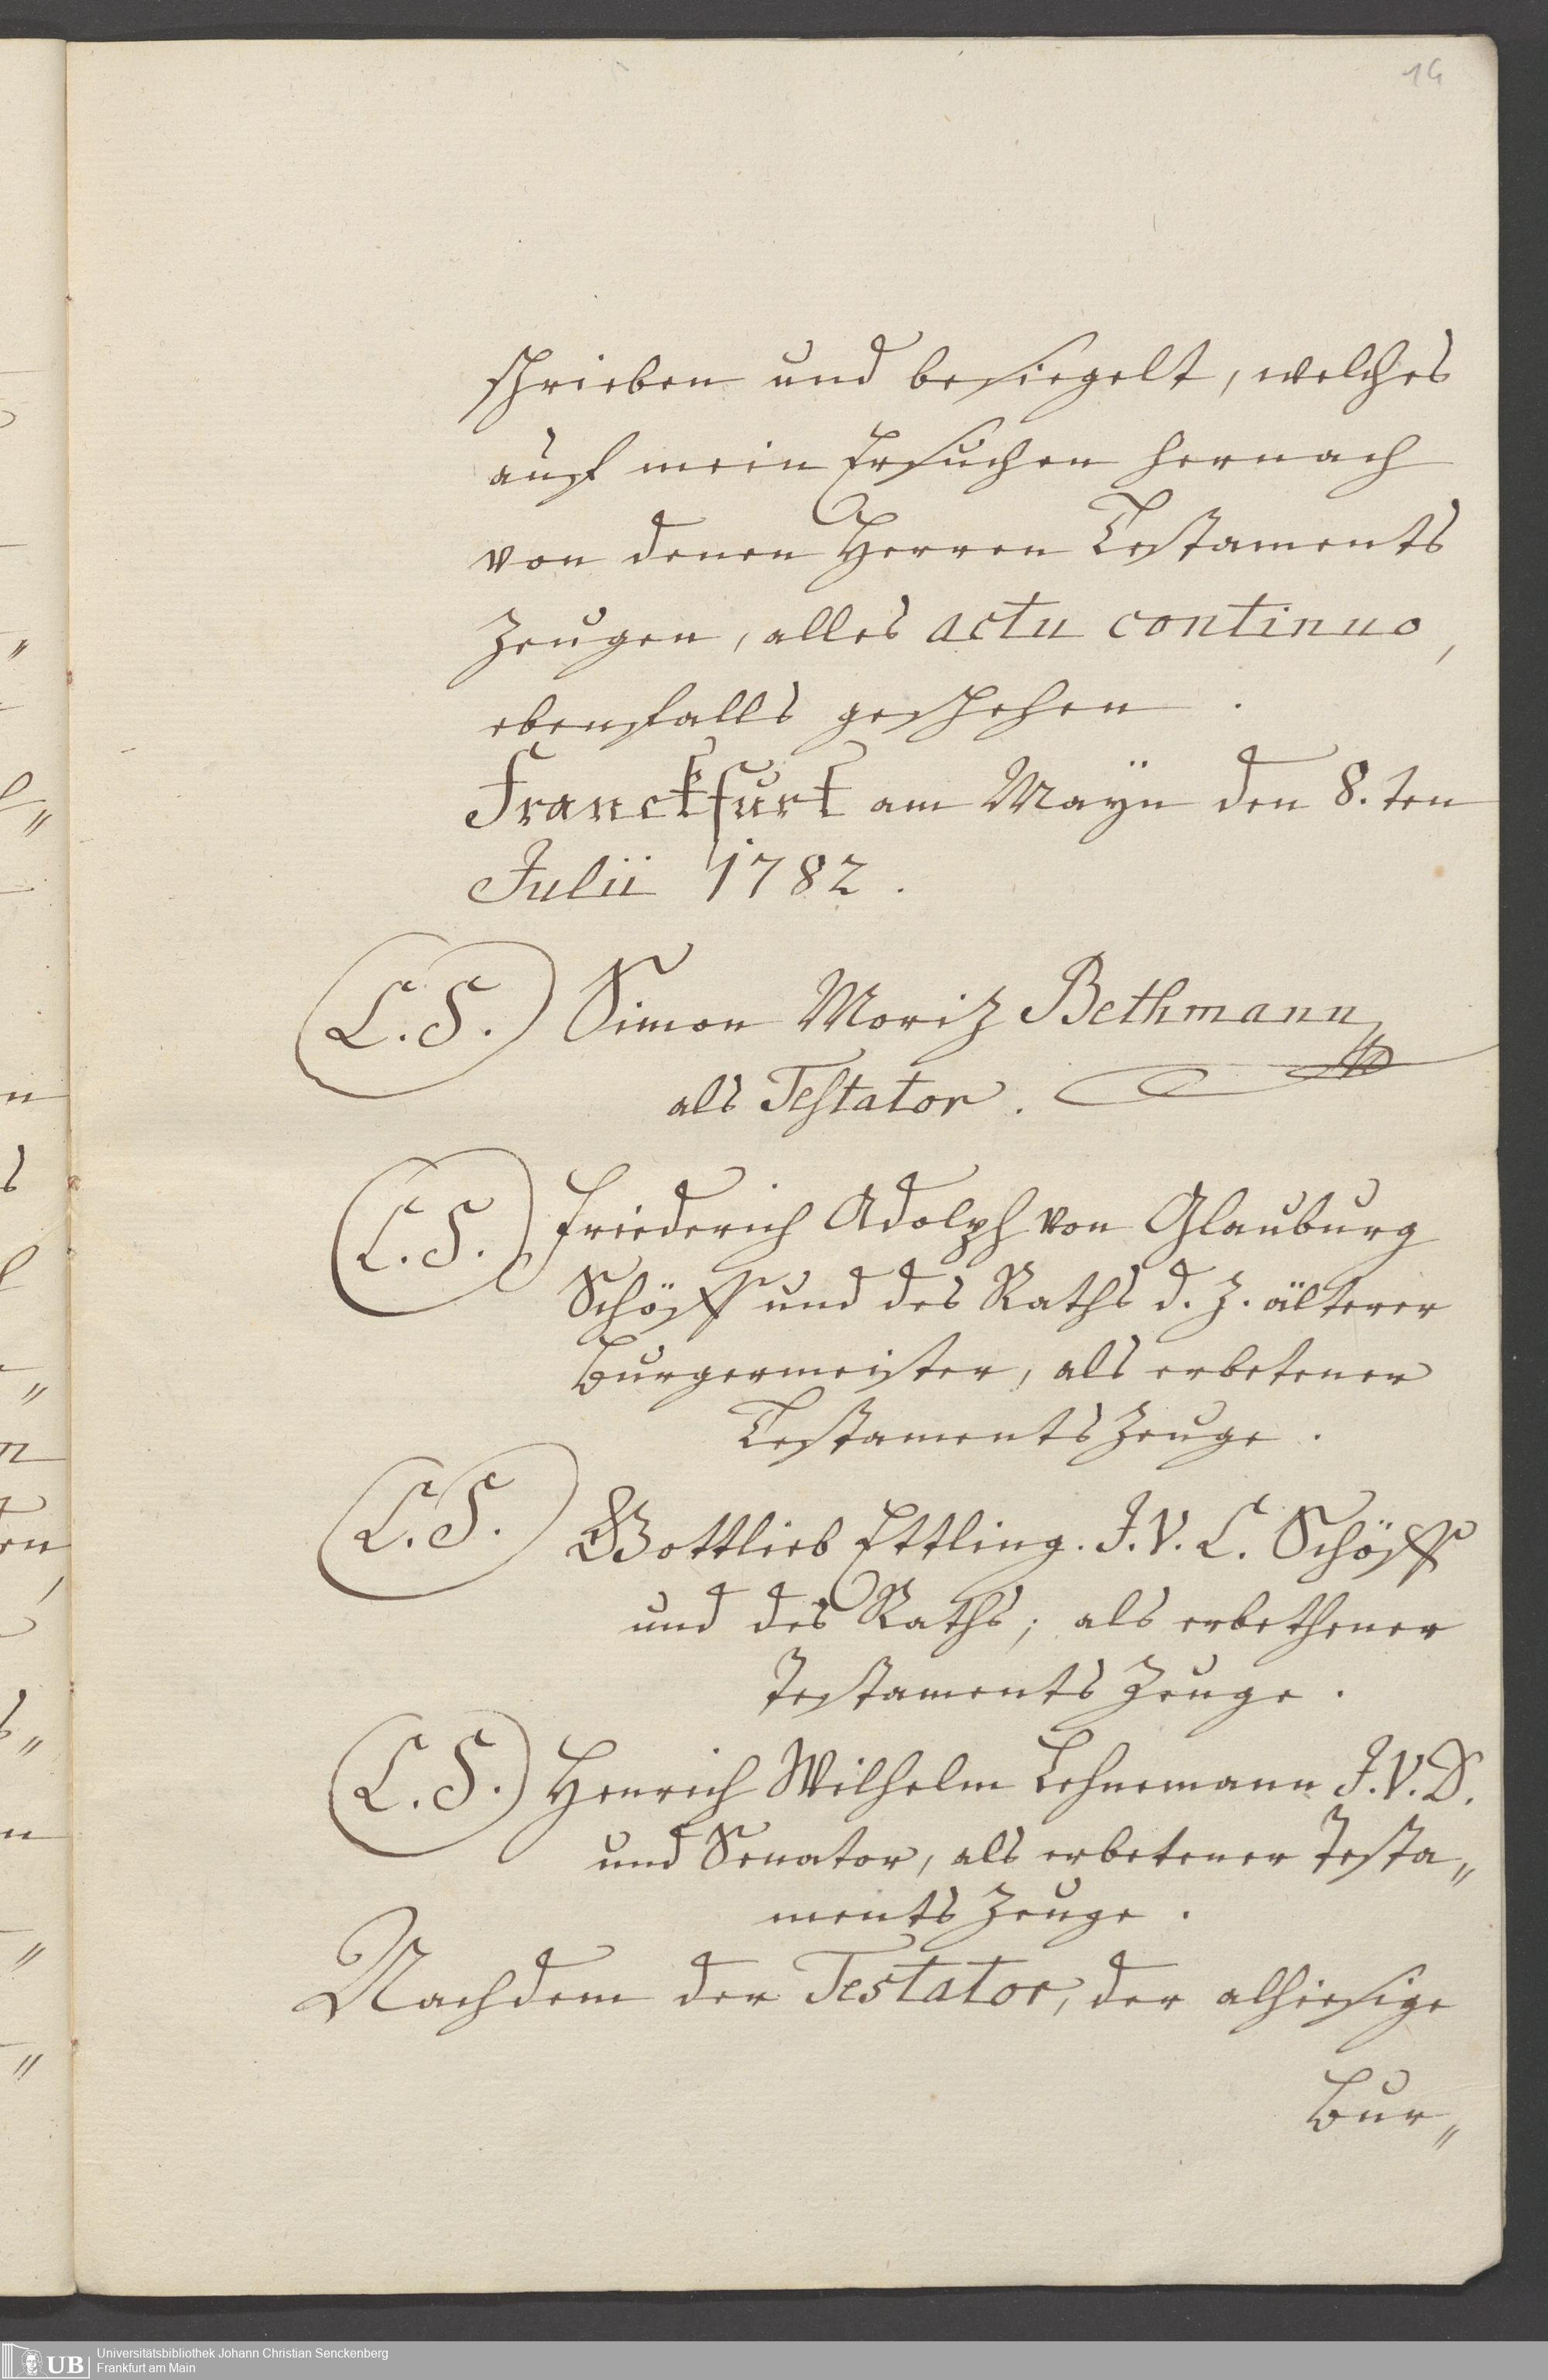 14
schrieben und besiegelt, welches
auf mein Ersuchen hernach
von denen Herren Testaments
Zeugen, alles actu continuo,
ebenfalls geschehen.
Franckfurt am Mayn den 8.ten
Julii 1782.
(L.S.) Simon Moriz Bethmann
als Testator.
(L.S.) Friederich Adolph von Glauburg
Schöff und des Raths d. Z. älterer
Burgermeister, als erbetener
Testaments Zeuge.
(L.S.) Gottlieb Ettling. J.V.L. Schöff
und des Raths; als erbethener
Testaments Zeuge.
(L.S.) Henrich Wilhelm Lehnemann J.V.D.
und Senator, als erbetener Testa„
ments Zeuge.
Nachdem der Testator, der alhiesige
Bur„
UB Universitätsbibliothek Johann Christian Senckenberg
Frankfurt am Main